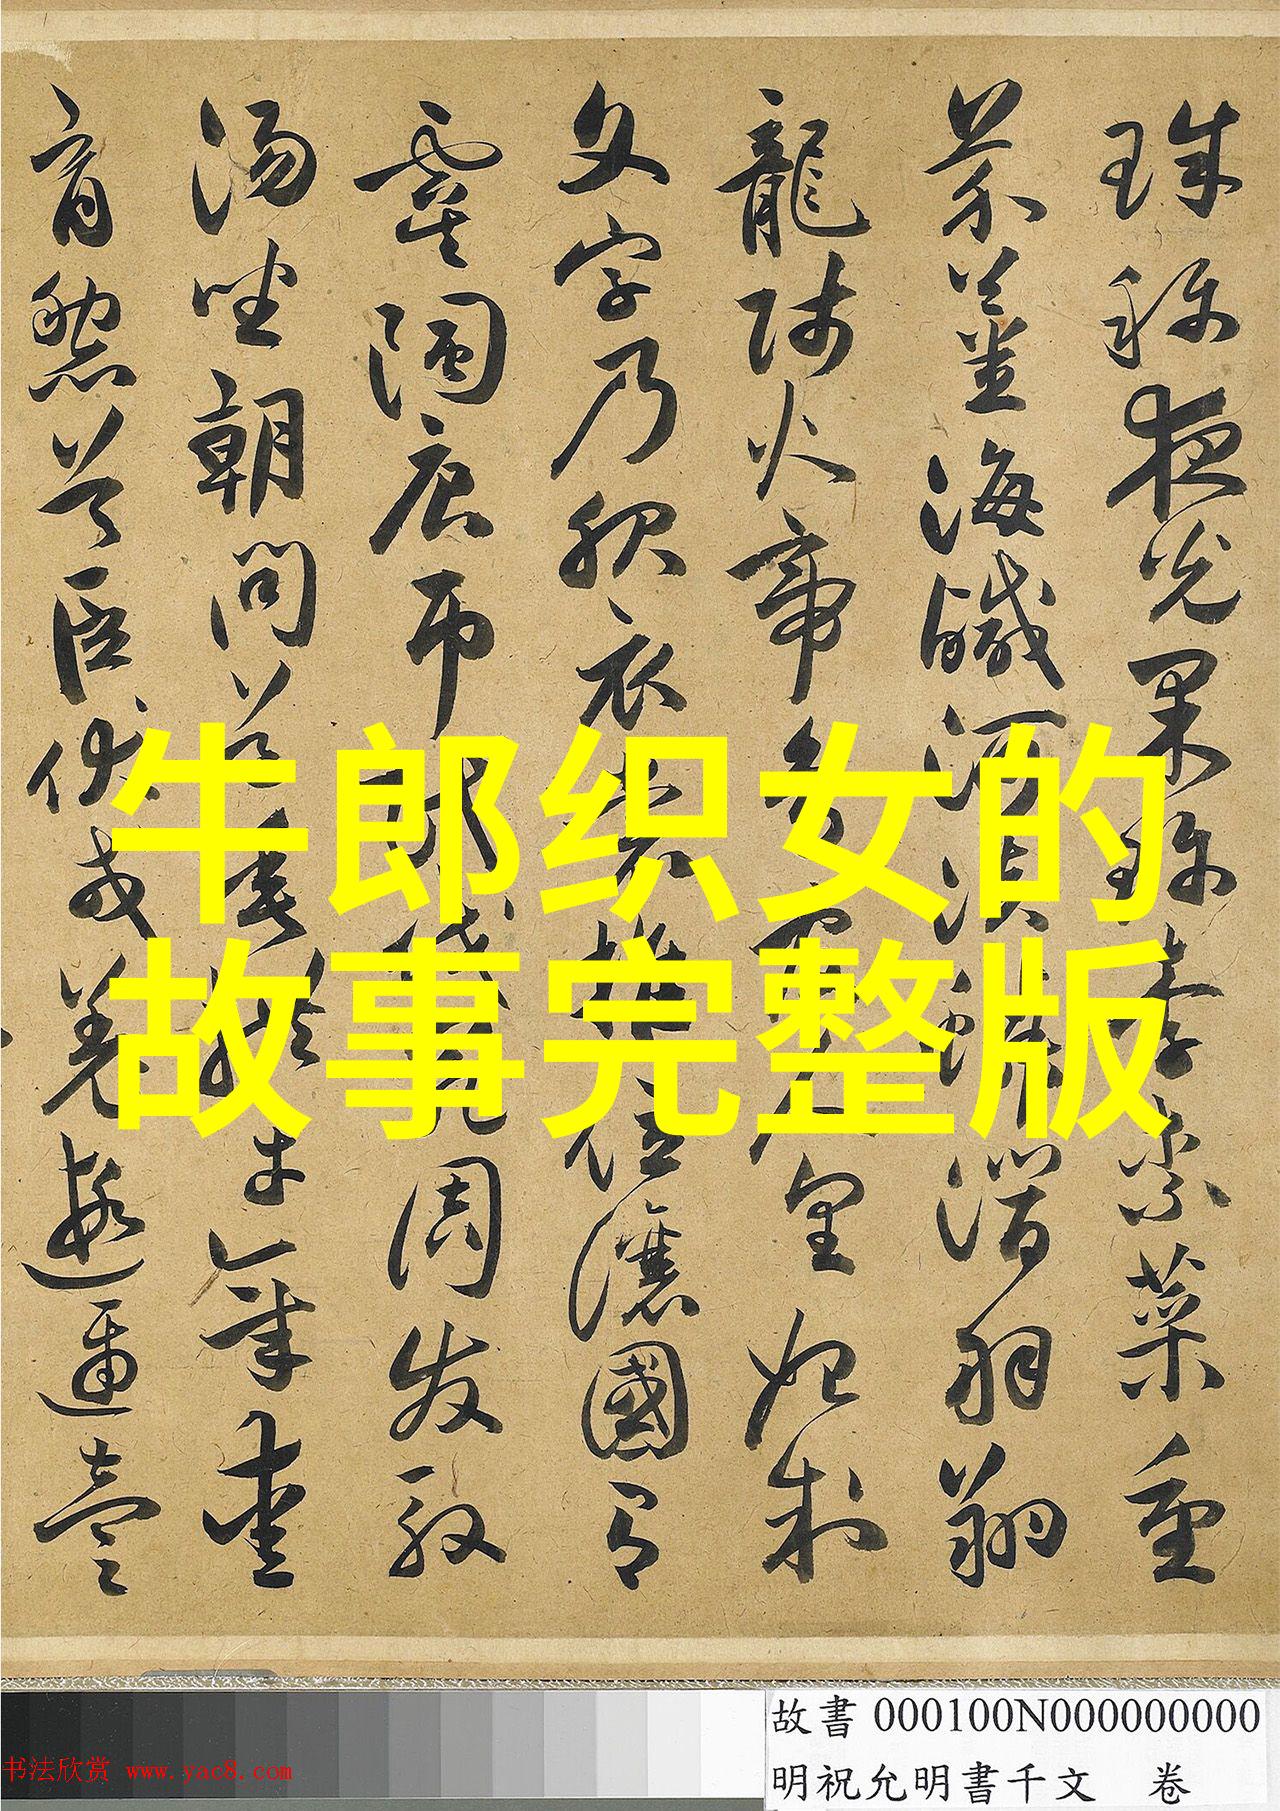 珠稱夜光果珍李柰菜重
芥薑海鹹河淡鱗潛羽翔
龍師火帝鳥官人皇始制
文字乃服衣裳推位讓國有
虞陶唐弔民伐罪周發殷
湯坐朝問道垂拱平章愛
育黎首臣伏戎羌遐邇壹
牛郎织女的
故事完整版
故書 000100N000000000
明祝允明書千文 卷
书法欣赏 www.yac8.com